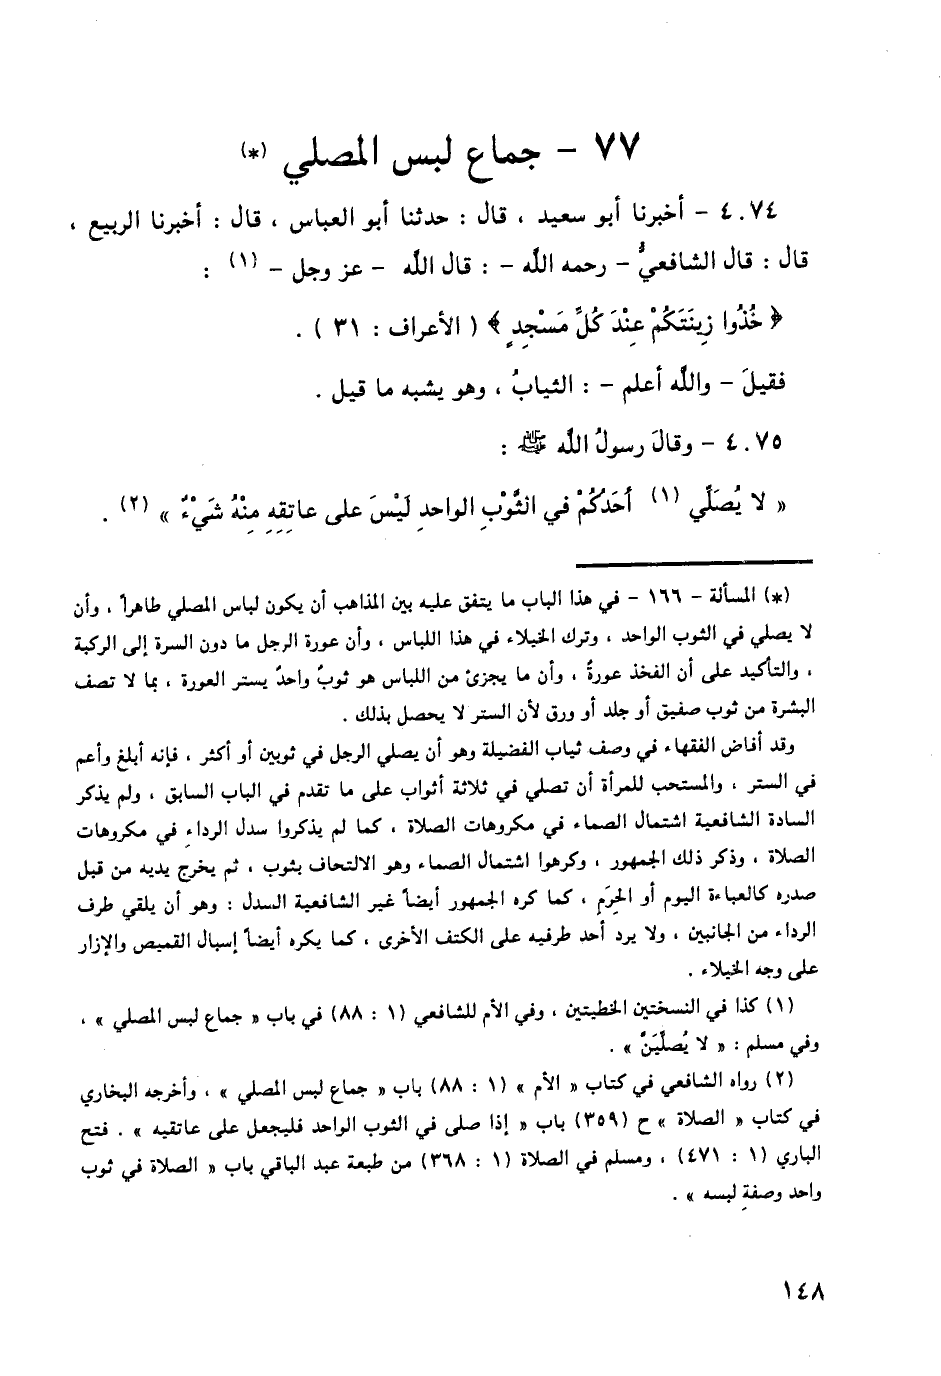 ٧٧ – جماع لبس المصلي (*)
٤٠٧٤ – أخبرنا أبو سعيد ، قال : حدثنا أبو العباس ، قال : أخبرنا الربيع ،
قال : قال الشافعيُّ – رحمه اللَّه – : قال اللَّه – عز وجل – (١) :
﴿ خُذُوا زِينَتَكُمْ عِنْدَ كُلِّ مَسْجِدٍ ﴾ ( الأعراف : ٣١ ) .
فقيلَ – واللَّه أعلم – : الثيابُ ، وهو يشبه ما قيل .
٤٠٧٥ – وقالَ رسولُ اللَّه ﷺ :
« لا يُصَلِّي (١) أَحَدُكُمْ في الثَّوْبِ الواحدِ لَيْسَ على عاتِقِهِ مِنْهُ شَيْءٌ » (٢) .
(*) المسألة – ١٦٦ – في هذا الباب ما يتفق عليه بين المذاهب أن يكون لباس المصلي طاهراً ، وأن
لا يصلي في الثوب الواحد ، وترك الخيلاء في هذا اللباس ، وأن عورة الرجل ما دون السرة إلى الركبة
، والتأكيد على أن الفخذ عورةٌ ، وأن ما يجزئ من اللباس هو ثوبٌ واحدٌ يستر العورة ، بما لا تصف
البشرة من ثوب صفيق أو جلد أو ورق لأن الستر لا يحصل بذلك .
وقد أفاض الفقهاء في وصف ثياب الفضيلة وهو أن يصلي الرجل في ثوبين أو أكثر ، فإنه أبلغ وأعم
في الستر ، والمستحب للمرأة أن تصلي في ثلاثة أثواب على ما تقدم في الباب السابق ، ولم يذكر
السادة الشافعية اشتمال الصماء في مكروهات الصلاة ، كما لم يذكروا سدل الرداءِ في مكروهات
الصلاة ، وذكر ذلك الجمهور ، وكرهوا اشتمال الصماء وهو الالتحاف بثوب ، ثم يخرج يديه من قبل
صدره كالعباءة اليوم أو الحِرَمِ ، كما كره الجمهور أيضاً غير الشافعية السدل : وهو أن يلقي طرف
الرداء من الجانبين ، ولا يرد أحد طرفيه على الكتف الأخرى ، كما يكره أيضاً إسبال القميص والإزار
على وجه الخيلاء .
(١) كذا في النسختين الخطيتين ، وفي الأم للشافعي (١ : ٨٨) في باب « جماع لبس المصلي » ،
وفي مسلم : « لا يُصلِّيَنَّ » .
(٢) رواه الشافعي في كتاب « الأم » (١ : ٨٨) باب « جماع لبس المصلي » ، وأخرجه البخاري
في كتاب « الصلاة » ح (٣٥٩) باب « إذا صلى في الثوب الواحد فليجعل على عاتقيه » . فتح
الباري (١ : ٤٧١) ، ومسلم في الصلاة (١ : ٣٦٨) من طبعة عبد الباقي باب « الصلاة في ثوب
واحد وصفةِ لبسه » .
١٤٨